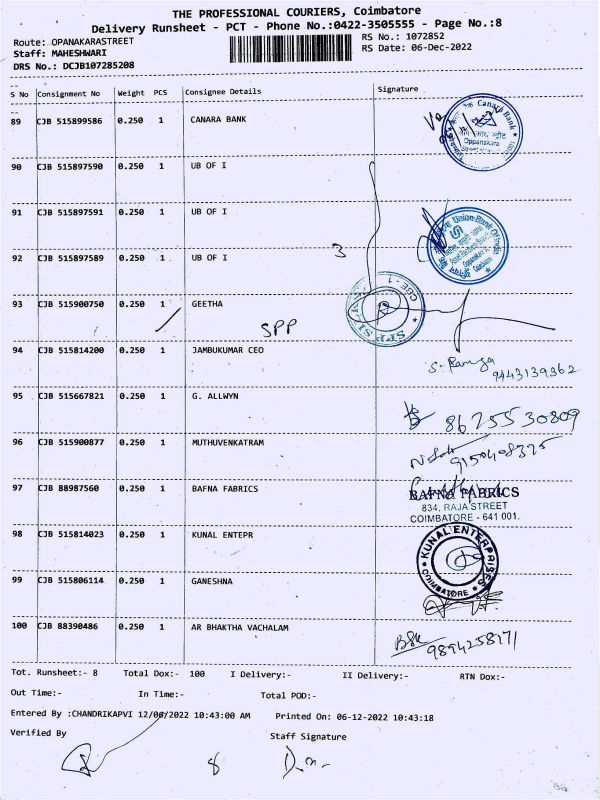 THE PROFESSIONAL COURIERS, Coimbatore
Delivery Runsheet - PCT - Phone No.:0422-3505555 - Page No.:8
Route: OPANAKARASTREET
RS No.: 1072852
Staff: MAHESHWARI
RS Date: 06-Dec-2022
DRS No.: DCJB107285208
S No Consignment No Weight PCS Consignee Details Signature
89 CJB 515899586 0.250 1 CANARA BANK
Canara Bank
Oppanakara
90 CJB 515897590 0.250 1 UB OF I
91 CJB 515897591 0.250 1 UB OF I
Union Bank Of India
92 CJB 515897589 0.250 1 UB OF I
3
93 CJB 515900750 0.250 1 GEETHA
SPP
CBE - 1
94 CJB 515814200 0.250 1 JAMBUKUMAR CEO
9443139362
95 CJB 515667821 0.250 1 G. ALLWYN
8675530809
96 CJB 515900877 0.250 1 MUTHUVENKATRAM
9150408325
97 CJB 88987560 0.250 1 BAFNA FABRICS
BAFNA FABRICS
834, RAJA STREET
COIMBATORE - 641 001.
98 CJB 515814023 0.250 1 KUNAL ENTEPR
KUNAL ENTERPRISES
COIMBATORE
99 CJB 515806114 0.250 1 GANESHNA
100 CJB 88390486 0.250 1 AR BHAKTHA VACHALAM
9894258171
Tot. Runsheet:- 8 Total Dox:- 100 I Delivery:- II Delivery:- RTN Dox:-
Out Time:- In Time:- Total POD:-
Entered By :CHANDRIKAPVI 12/06/2022 10:43:00 AM Printed On: 06-12-2022 10:43:18
Verified By Staff Signature
8